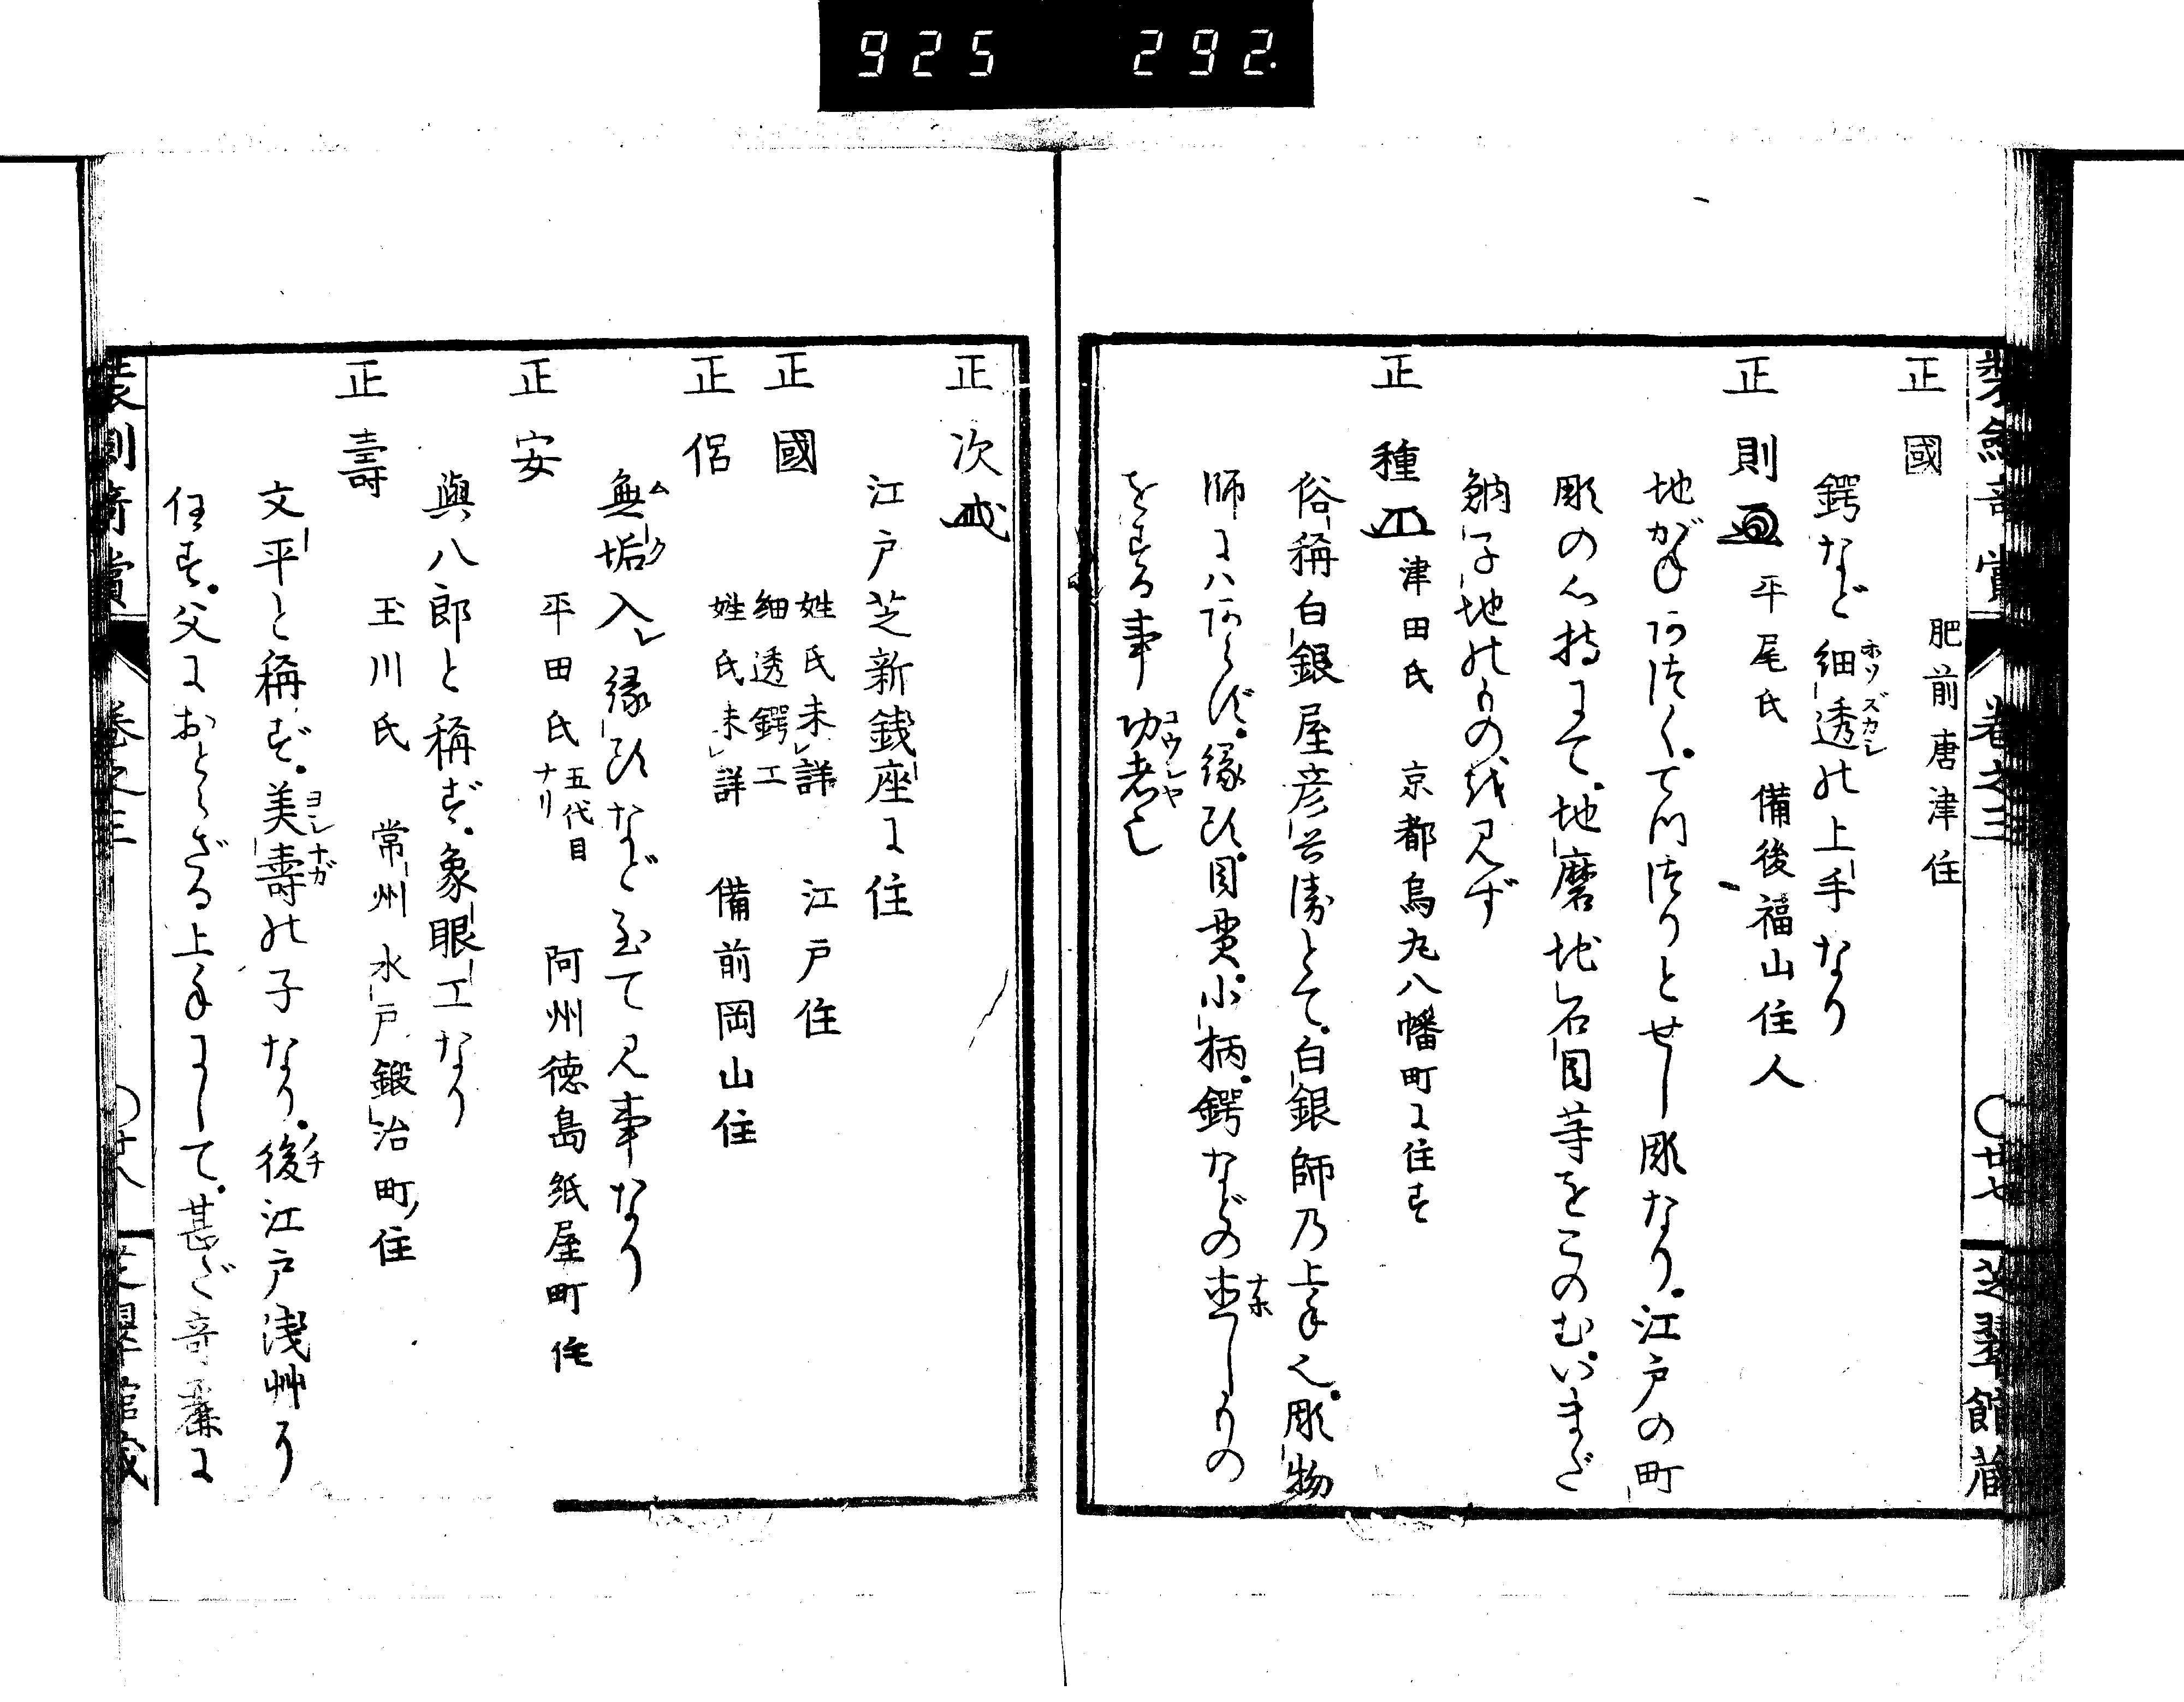 925 292.
装劔奇賞 巻之三 〇廿七 芝翠館蔵
正國 肥前唐津住
鍔など細透の上手なり
ホソズカシ
正則 平尾氏 備後福山住人
地がね
とせし彫なり。江戸の町
彫の心持にて。地磨地石目等をこのむ。いまだ
魶子地のものを見ず
正種 津田氏 京都烏丸八幡町に住す
俗称白銀屋彦兵衛とて。白銀師乃上手也。彫物
師にハあらず。縁頭。目貫。小柄。鍔などの
ナホ
をする事功者也
コウシヤ
正次
江戸芝新銭座に住
正國 姓氏未詳 江戸住
細透鍔工
正侶 姓氏未詳 備前岡山住
無垢入レ縁頭など至て見事なり
ムク
正安 平田氏 五代目ナリ 阿州徳島紙屋町住
與八郎と称ず。象眼工なり
正壽 玉川氏 常州水戸鍛治町住
文平と称ず。美壽の子なり。後江戸浅艸
ヨシナガ
ノチ
住す。父におとらざる上手にして。甚ダ奇麗に
装劔奇賞 巻之三 〇廿八 芝翠館蔵